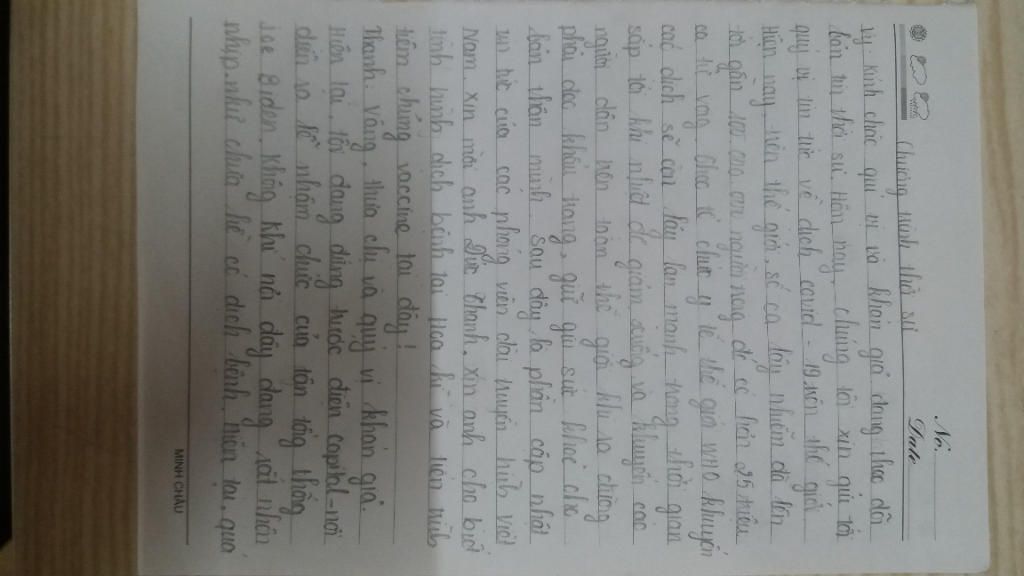 No.
Date
Chương trình thời sự
Vy kính chào quí vị và khán giả đang theo dõi
bản tin thời sự hôm nay, chúng tôi xin gửi tới
quý vị tin tức về dịch covid - 19 trên thế giới
Hiện nay, trên thế giới, số ca lây nhiễm đã lên
tới gần 100 ca con người nay để có hơn 25 triệu
ca tử vong theo tổ chức y tế thế giới WHO khuyến
cáo dịch sẽ còn lây lan mạnh trong thời gian
sắp tới khi nhiệt độ giảm xuống và khuyến cáo
người dân nên toàn thế giới khi ra đường
phải đeo khẩu trang, giữ gìn sức khỏe cho
bản thân mình. sau đây là phần cập nhật
tin tức của các phóng viên đài truyền hình việt
Nam. xin mời anh Đức Thanh. xin anh cho biết
tình hình dịch bệnh tại Hoa Kì và tiến trình
tiêm chủng vaccine tại đây!
Thanh: Vâng, thưa chị và quý vị khán giả.
Hiện tại, tôi đang đứng trước điện capitol - nơi
diễn ra lễ nhậm chức của tân tổng thống
Joe Biden. Không khí nơi đây đang rất nhộn
nhịp như chưa hề có dịch bệnh, hiện tại, quá
MINH CHÂU